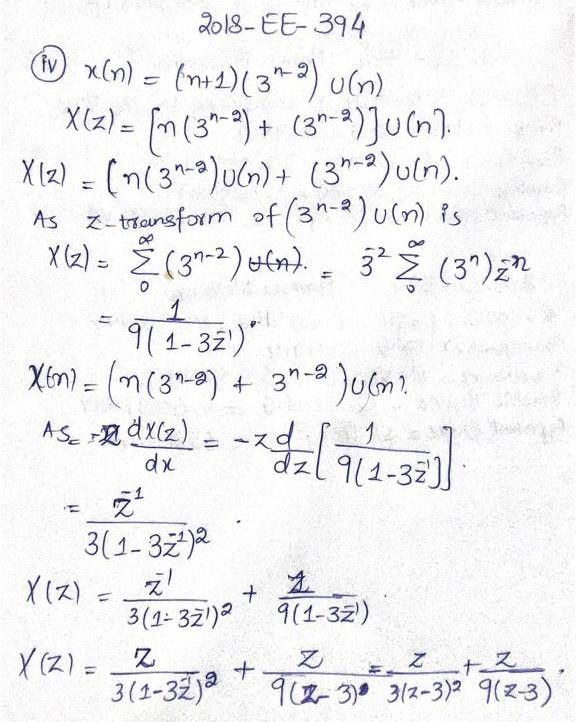 2018-EE-394
(iv) x(n) = (n+1)(3ⁿ⁻²) U(n)
X(z) = [n(3ⁿ⁻²) + (3ⁿ⁻²)]U(n].
X(z) = [n(3ⁿ⁻²)U(n) + (3ⁿ⁻²)U(n).
As z-transform of (3ⁿ⁻²)U(n) is
X(z) = ∞Σ0 (3ⁿ⁻²) U(n). = 3⁻² ∞Σ0 (3ⁿ)z⁻ⁿ
= 1/9(1-3z⁻¹).
X(n) = (n(3ⁿ⁻²) + 3ⁿ⁻²)U(n).
As = -z dX(z)/dx = -z d/dz [1/9(1-3z⁻¹)].
= z⁻¹/3(1-3z⁻¹)² .
X(z) = z⁻¹/3(1-3z⁻¹)² + 1/9(1-3z⁻¹)
X(z) = z/3(1-3z⁻¹)² + z/9(z-3) = z/3(z-3)² + z/9(z-3) .